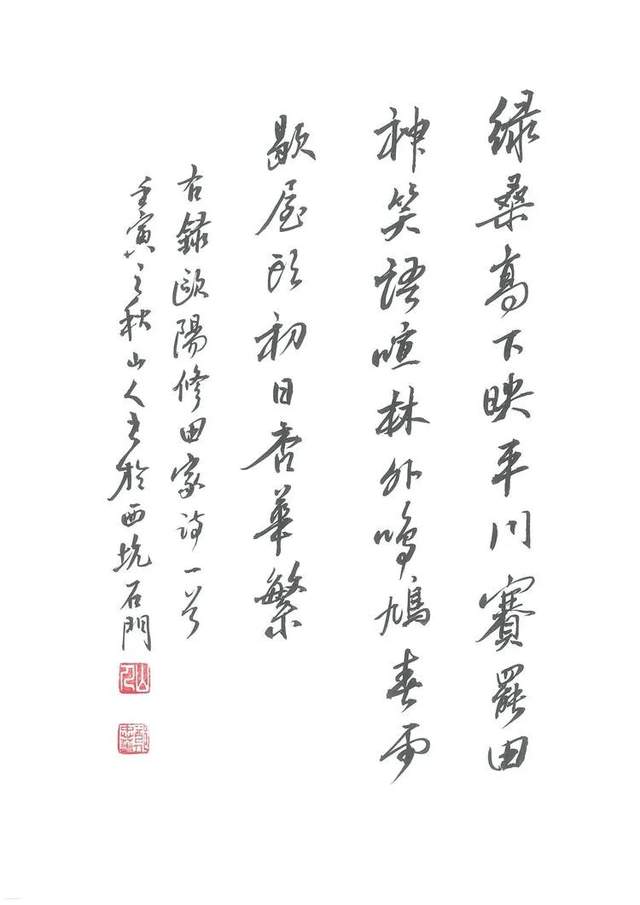 綠桑高下映平川賽罷田
神笑語喧林外鳴鳩春雨
歇屋頭初日杏華繁
右錄歐陽修田家詩一首
壬寅之秋山人書於西坑石門
山人